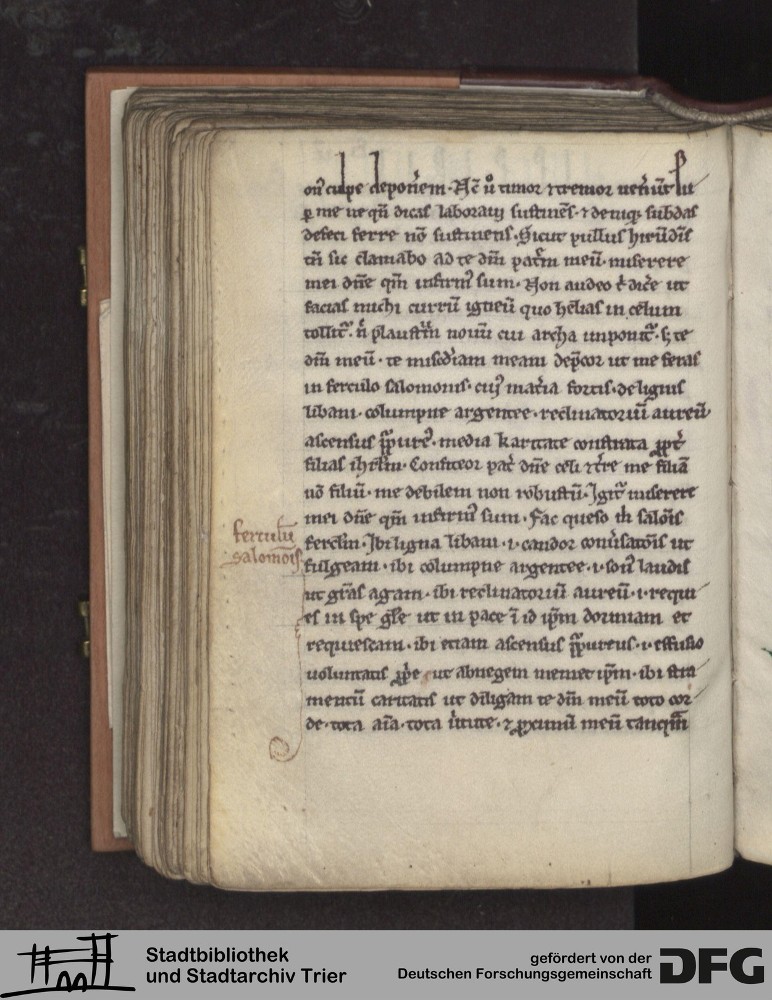 culpe deponem. Nc̄ ů timor ⁊ tremor uen̄ūt su
ꝑ me ut qn̄ dicas laboraui sustinēs. ⁊ deniqꝫ subdas
defeci ferre nō sustinens. Sicut pullus hirūdīs
sic clamabo ad te dm̄ patr̄m meū. miserere
mei dn̄e qm̄ infirmꝰ sum. Non audeo dic̄e ut
facias michi currū igneū quo helias in celum
tollitᷣ. n̄ plaustrū nouū cui archa imponitᷣ. sꝫ te
dm̄ meū. te mis̄cdiam meam dep̄cor ut me feras
in ferculo salomonis. cuiꝰ mat̄ia fortis. de lignis
libani. columpne argentee. reclinatoriū aureū
ascensus purꝰ. media karitate constrata ꝓpt̄
filias ihrl̄m. Confiteor pat̄ dn̄e celi ⁊ t̄re me filiā
nō filiū. me debilem non robustū. Igitᷣ miserere
mei dn̄e qm̄ infirmꝰ sum. Fac queso salōis
fercl̄m. Ibi ligna libani .i. candor conūsatōis ut
fulgeam. ibi columpne argentee .i. sonꝰ laudis
ut gr̄as agam. ibi reclinatoriū aureū .i. requi
es in spe gl̄e ut in pace ī id ip̄m dormiam et
requiescam. ibi etiam ascensus purpureus .i. effusio
voluntatis ꝓp̄e ut abnegem memet ip̄m. ibi stra
mentū caritatis ut diligam te dm̄ meū toto cor
de. tota aīa. tota ūtute. ⁊ ꝓximū meū tanquā
ferculū
salomōis
Stadtbibliothek
und Stadtarchiv Trier
gefördert von der
Deutschen Forschungsgemeinschaft
DFG